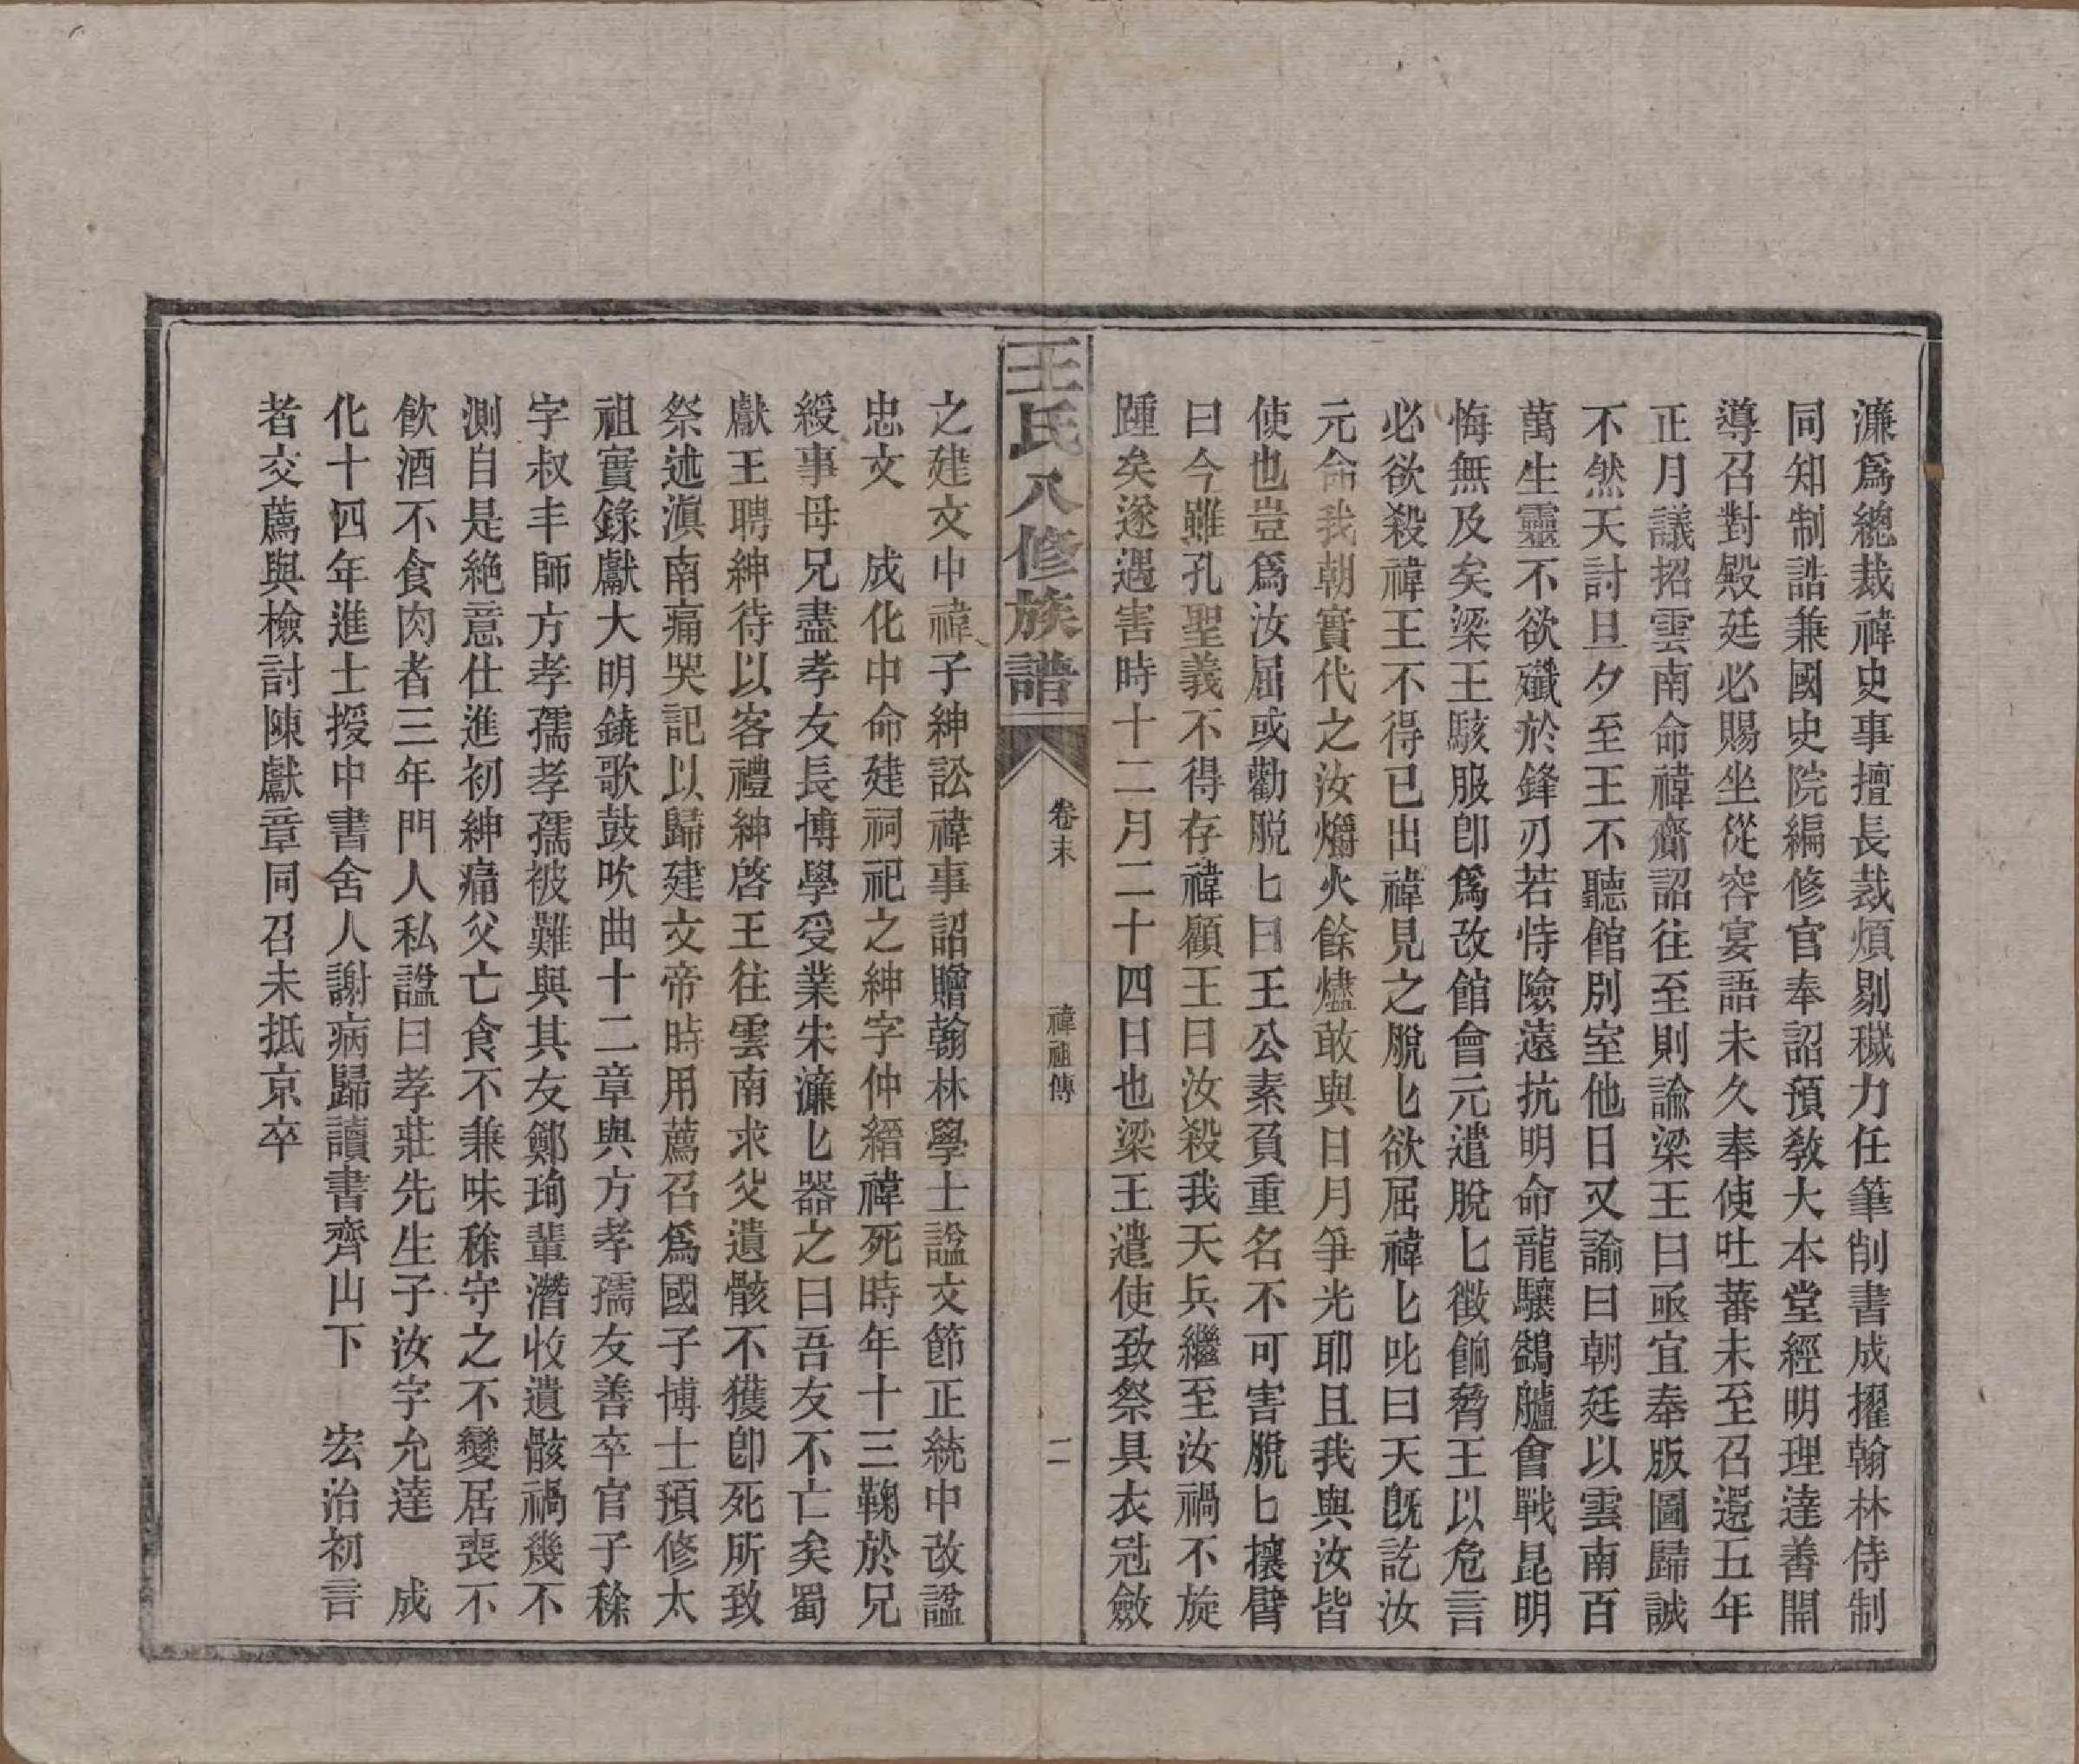 濂爲總裁禕史事擅長裁煩剔穢力任筆削書成擢翰林侍制
同知制誥兼國史院編修官奉詔預敎大本堂經明理達善開
導召對殿廷必賜坐從容宴語未久奉使吐蕃未至召還五年
正月議招雲南命禕齎詔往至則諭梁王曰亟宜奉版圖歸誠
不然天討旦夕至王不聽館別室他日又諭曰朝廷以雲南百
萬生靈不欲殲於鋒刃若恃險遠抗明命龍驤鷁艫會戰昆明
悔無及矣梁王駭服卽爲改館會元遣脫匕徵餉脅王以危言
必欲殺禕王不得已出禕見之脫匕欲屈禕匕叱曰天旣訖汝
元命我朝實代之汝爝火餘燼敢與日月爭光耶且我與汝皆
使也豈爲汝屈或勸脫匕曰王公素負重名不可害脫匕攘臂
曰今雖孔聖義不得存禕顧王曰汝殺我天兵繼至汝禍不旋
踵矣遂遇害時十二月二十四日也梁王遣使致祭具衣冠斂
王氏八修族譜
卷末
禕祖傳
二
之建文中禕子紳訟禕事詔贈翰林學士諡文節正統中改諡
忠文　成化中命建祠祀之紳字仲縉禕死時年十三鞠於兄
綬事母兄盡孝友長博學受業宋濂匕器之曰吾友不亡矣蜀
獻王聘紳待以客禮紳啓王往雲南求父遺骸不獲卽死所致
祭述滇南痛哭記以歸建文帝時用薦召爲國子博士預修太
祖實錄獻大明鐃歌鼓吹曲十二章與方孝孺友善卒官子稌
字叔丰師方孝孺孝孺被難與其友鄭珣輩潛收遺骸禍幾不
測自是絶意仕進初紳痛父亡食不兼味稌守之不變居喪不
飮酒不食肉者三年門人私諡曰孝莊先生子汝字允達　成
化十四年進士授中書舍人謝病歸讀書齊山下　宏治初言
者交薦與檢討陳獻章同召未抵京卒